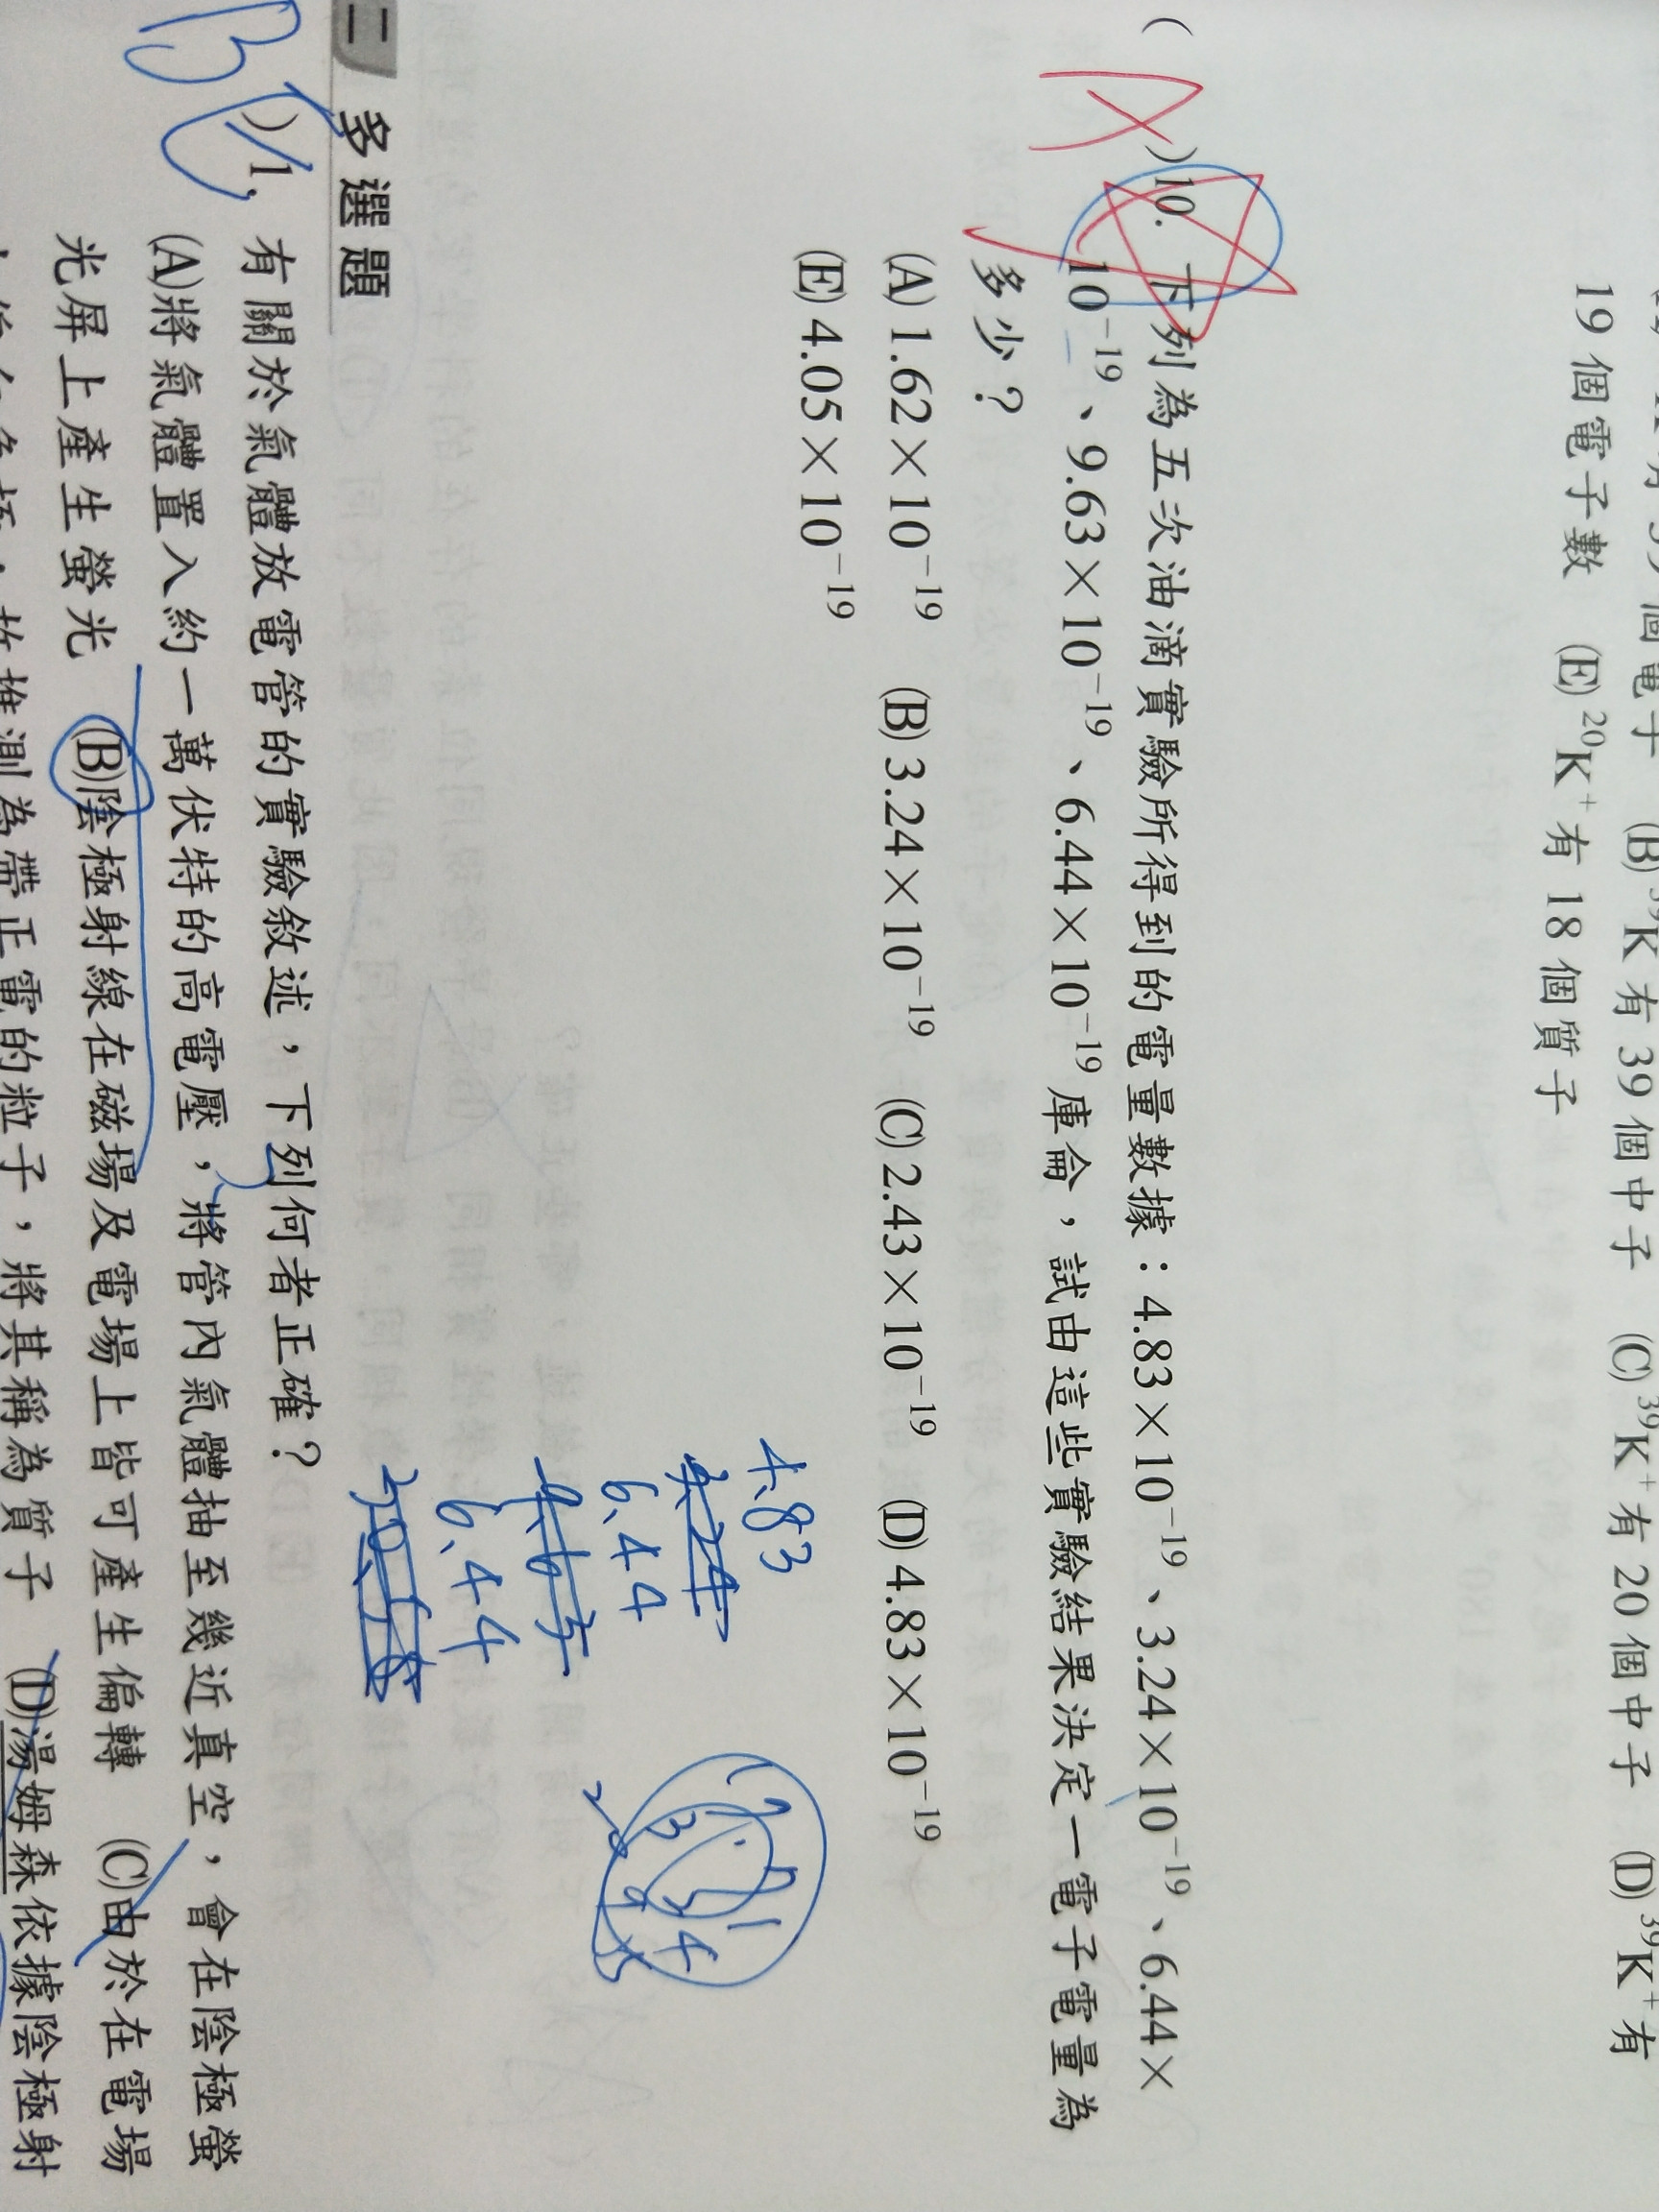 19 個電子數 (E) ²⁰K⁺有 18 個質子
個電子 (B) ³⁹K 有 39 個中子 (C) ³⁹K⁺有 20 個中子 (D) ³⁹K⁺有
( A )10. 下列為五次油滴實驗所得到的電量數據：4.83×10⁻¹⁹、3.24×10⁻¹⁹、6.44×
10⁻¹⁹、9.63×10⁻¹⁹、6.44×10⁻¹⁹庫侖，試由這些實驗結果決定一電子電量為
多少？
(A) 1.62×10⁻¹⁹ (B) 3.24×10⁻¹⁹ (C) 2.43×10⁻¹⁹ (D) 4.83×10⁻¹⁹
(E) 4.05×10⁻¹⁹
4.83
6.44
6.44
二 多選題
B )1. 有關於氣體放電管的實驗敘述，下列何者正確？
(A)將氣體置入約一萬伏特的高電壓，將管內氣體抽至幾近真空，會在陰極螢
光屏上產生螢光 (B)陰極射線在磁場及電場上皆可產生偏轉 (C)由於在電場
故推測為帶正電的粒子，將其稱為質子 (D)湯姆森依據陰極射